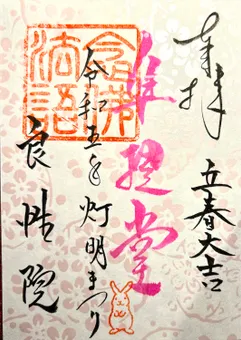 奉拝
立春大吉
准提堂
令和五年 灯明まつり
良性院
念佛
法語